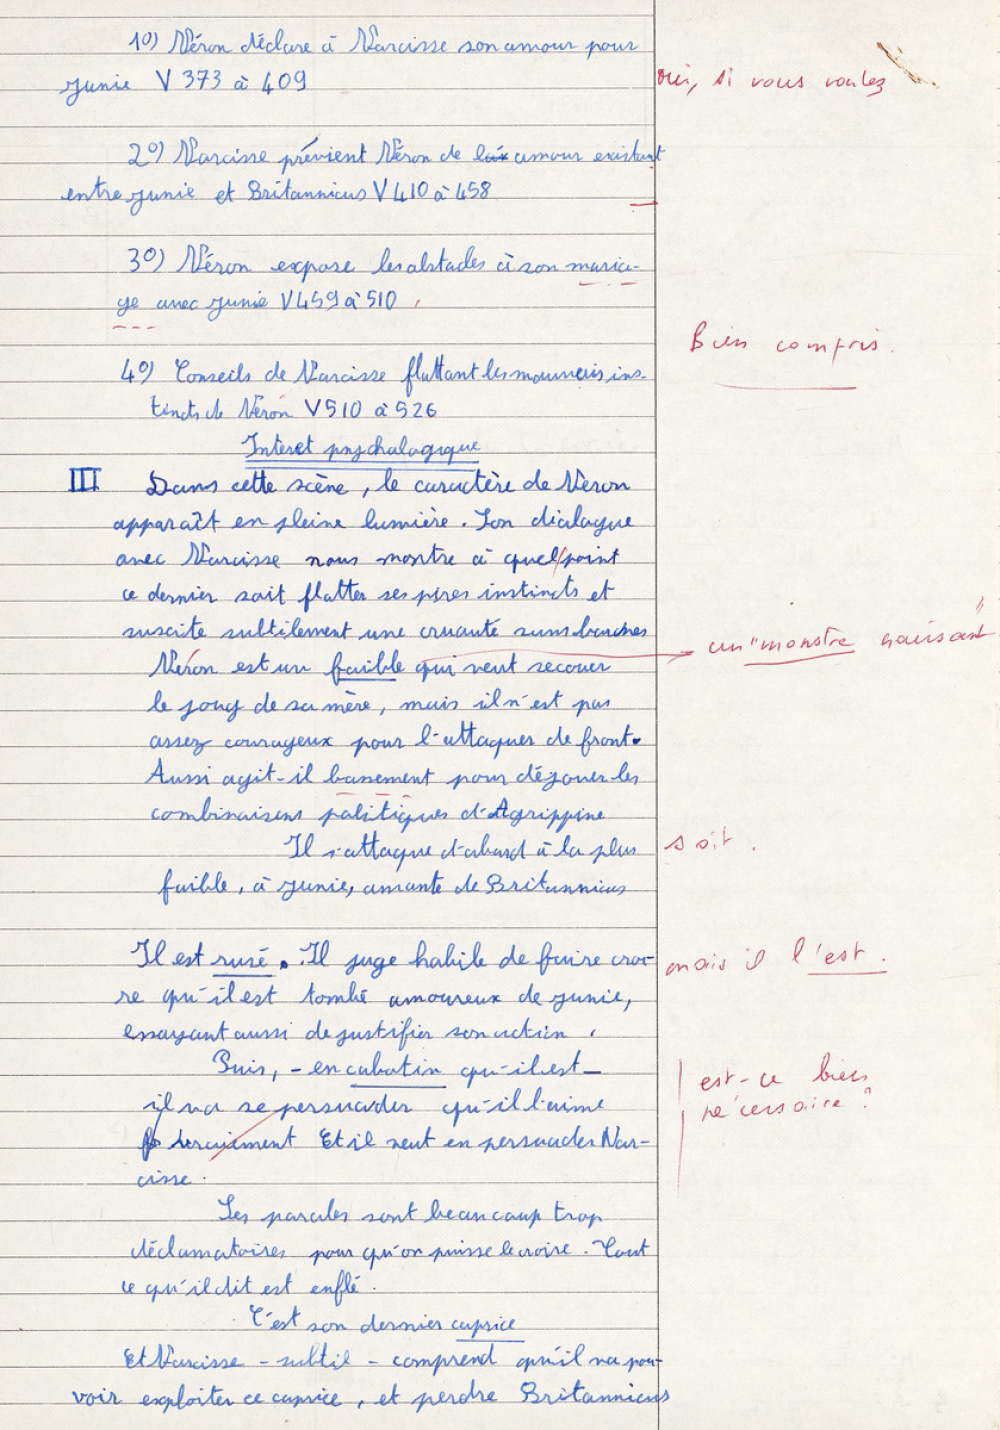 1o) Néron déclare à Narcisse son amour pour
Junie V 373 à 409
oui, si vous voulez
2o) Narcisse prévient Néron de l' amour existant
entre Junie et Britannicus V 410 à 458
3o) Néron expose les obstacles à son maria-
ge avec Junie V 459 à 510
Bien compris.
4o) Conseils de Narcisse flattant les mauvais ins-
tincts de Néron V 510 à 526
Interet psychologique
III Dans cette scène, le caractère de Néron
apparaît en pleine lumière. Son dialogue
avec Narcisse nous montre à quel point
ce dernier sait flatter ses pires instincts et
suscite subtilement une cruauté sans bornes
Néron est un faible qui veut secouer
un "monstre naissant"
le joug de sa mère, mais il n'est pas
assez courageux pour l'attaquer de front.
Aussi agit-il bassement pour déjouer les
combinaisons politiques d'Agrippine
Il s'attaque d'abord à la plus
soit.
faible, à Junie, amante de Britannicus
Il est rusé. Il juge habile de faire croi-
mais il l'est.
re qu'il est tombé amoureux de Junie,
essayant aussi de justifier son action.
Puis, - en cabotin qu'il est -
est-ce bien
nécessaire ?
il va se persuader qu'il l'aime
vraiment Et il veut en persuader Nar-
cisse.
Ses paroles sont beaucoup trop
déclamatoires pour qu'on puisse le croire. Tout
ce qu'il dit est enflé.
C'est son dernier caprice
Et Narcisse - subtil - comprend qu'il va pou-
voir exploiter ce caprice, et perdre Britannicus